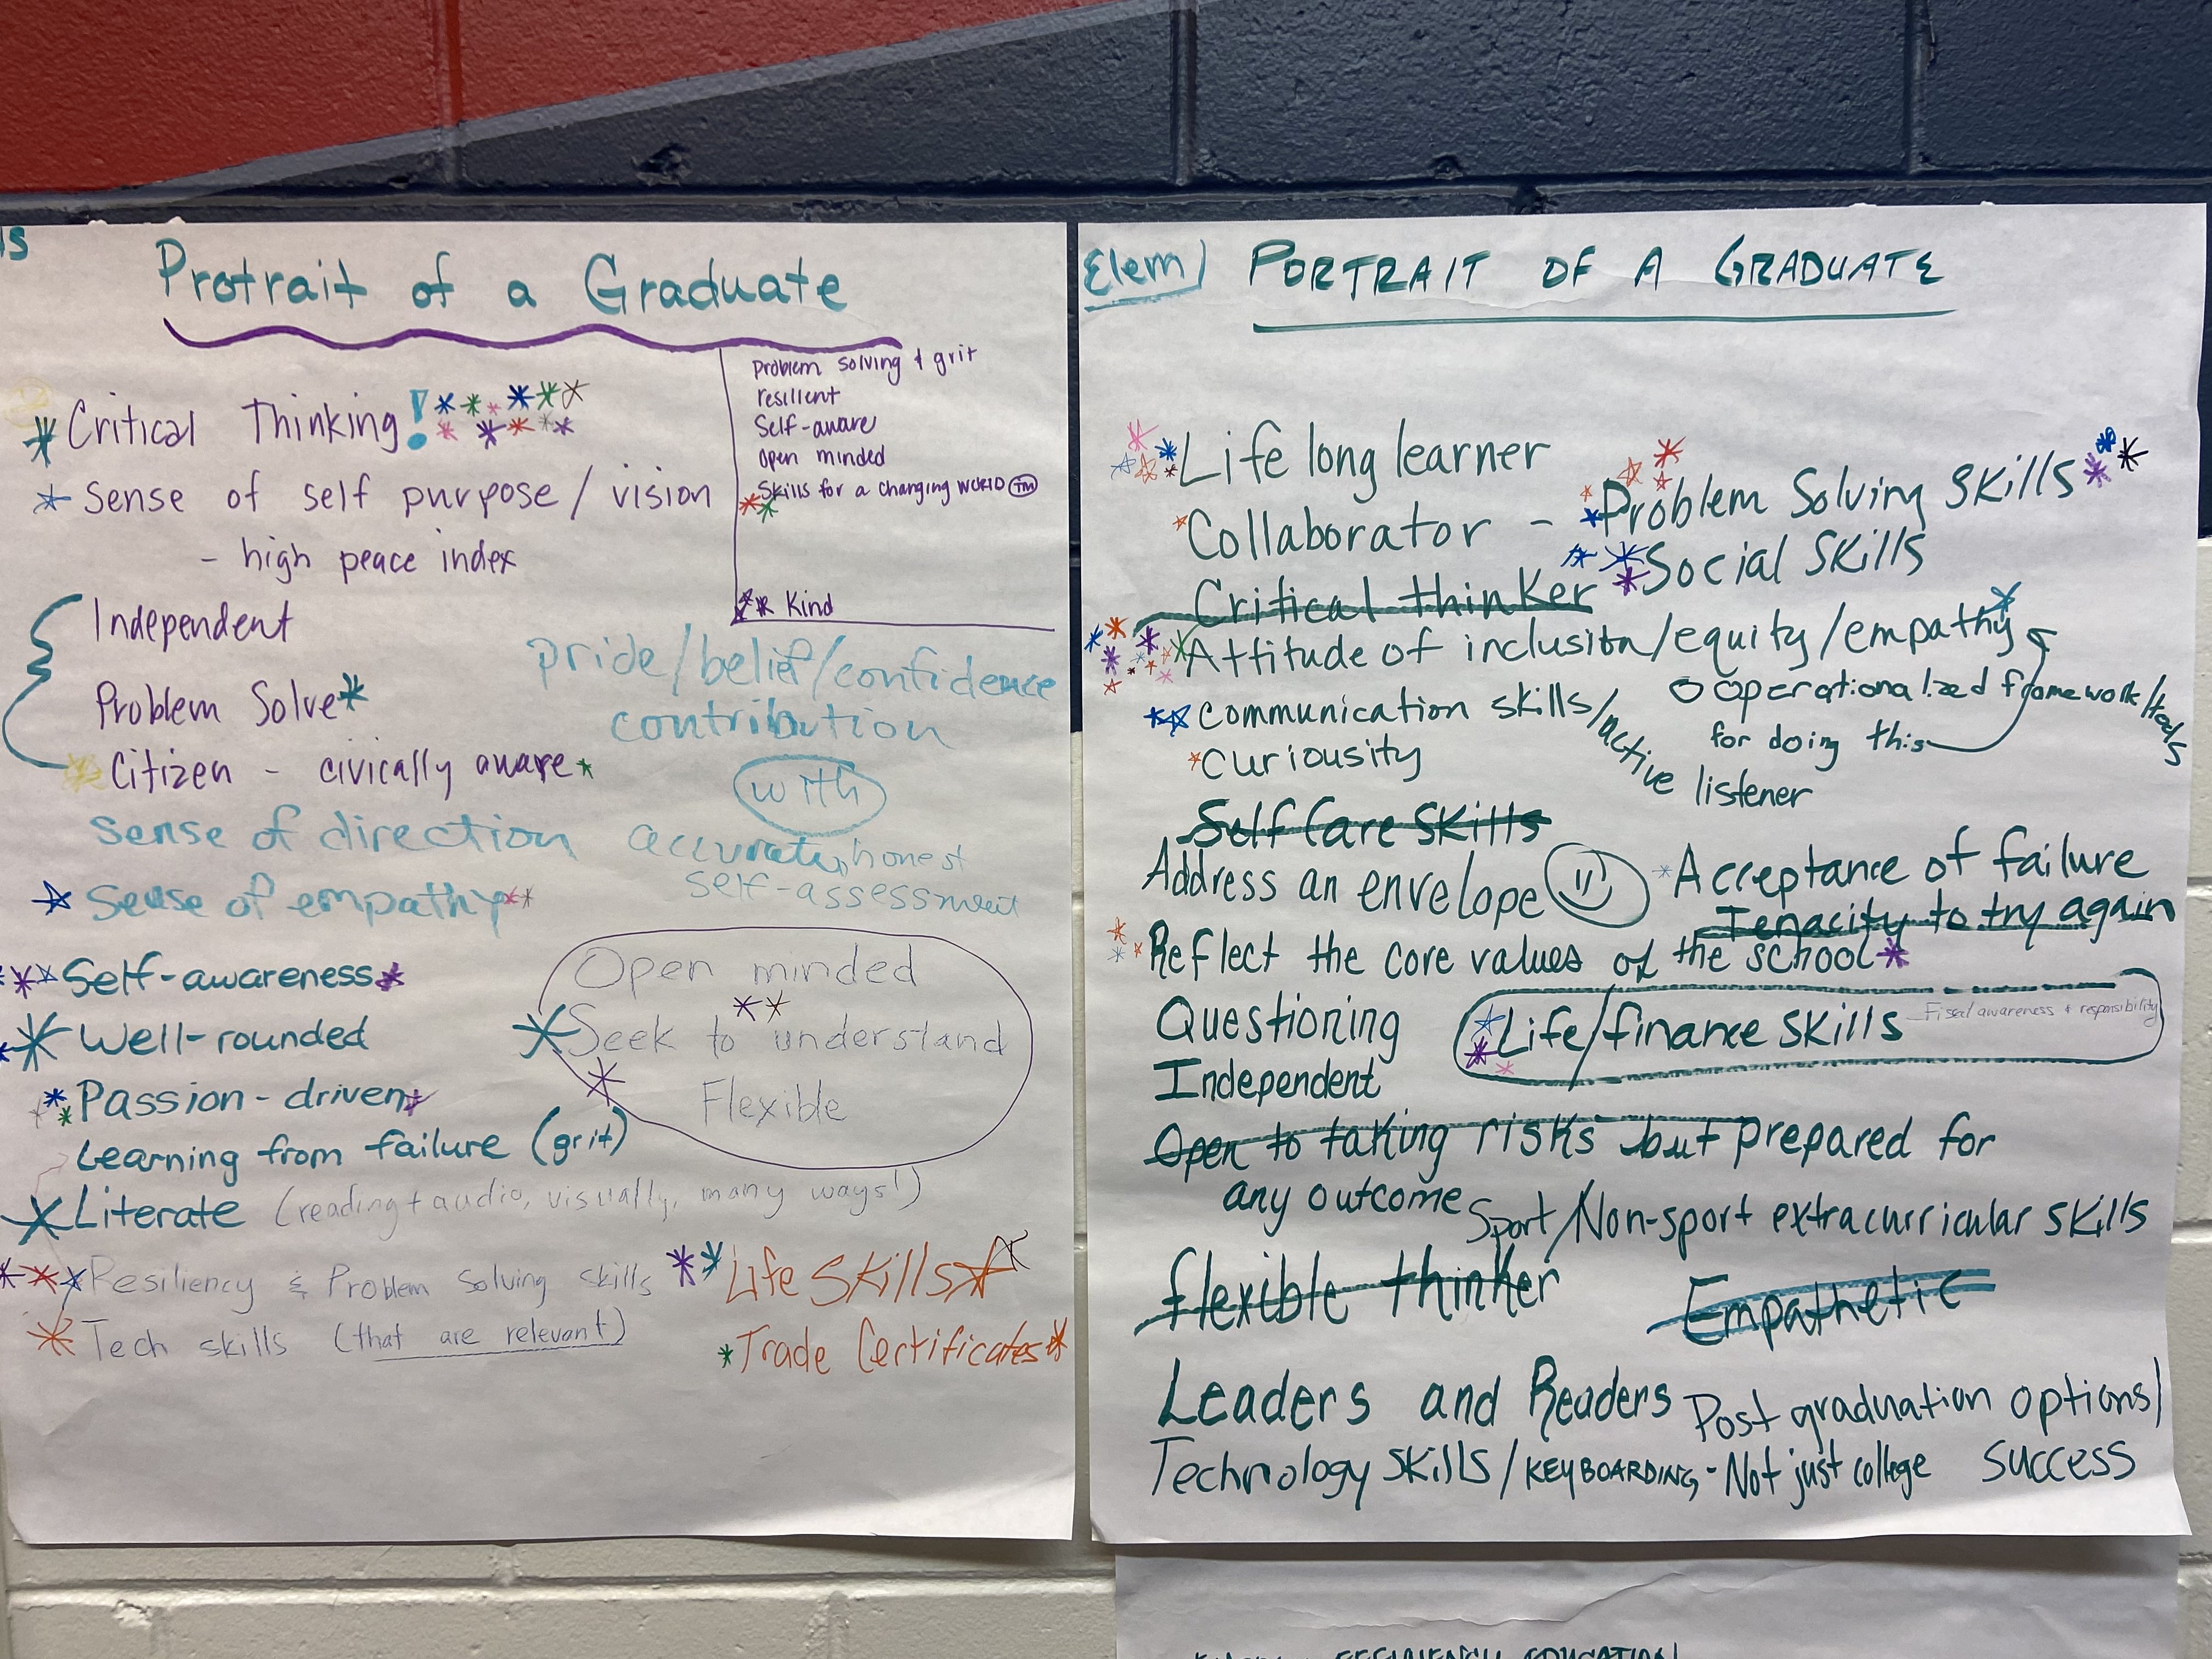 Protrait of a Graduate
Critical Thinking!
Sense of self purpose / vision
- high peace index
Independent
Problem Solve
Citizen - civically aware
Problem solving + grit
resilient
Self-aware
Open minded
Skills for a changing WORLD TM
Kind
pride/belief/confidence
contribution
with
accurate, honest
self-assessment
sense of direction
Sense of empathy
Self-awareness
Well-rounded
Passion-driven
Learning from failure (grit)
Open minded
Seek to understand
Flexible
Literate (reading + audio, visually, many ways!)
Resiliency & Problem Solving skills
Tech skills (that are relevant)
Life Skills
Trade Certificates
Elem PORTRAIT OF A GRADUATE
Life long learner
Collaborator - Problem Solving Skills
Social Skills
Critical thinker
Attitude of inclusion/equity/empathy
operationalized framework/
for doing this
Communication skills/active
listener
Curiousity
Self Care Skills
Address an envelope
Acceptance of failure
Tenacity to try again
Reflect the core values of the school
Questioning
Life/finance skills Fiscal awareness + responsibility
Independent
Open to taking risks but prepared for
any outcome
Sport/Non-sport extracurricular skills
flexible thinker
Empathetic
Leaders and Readers
Post graduation options/
success
Technology skills / KEYBOARDING - Not just college
EDUCATION